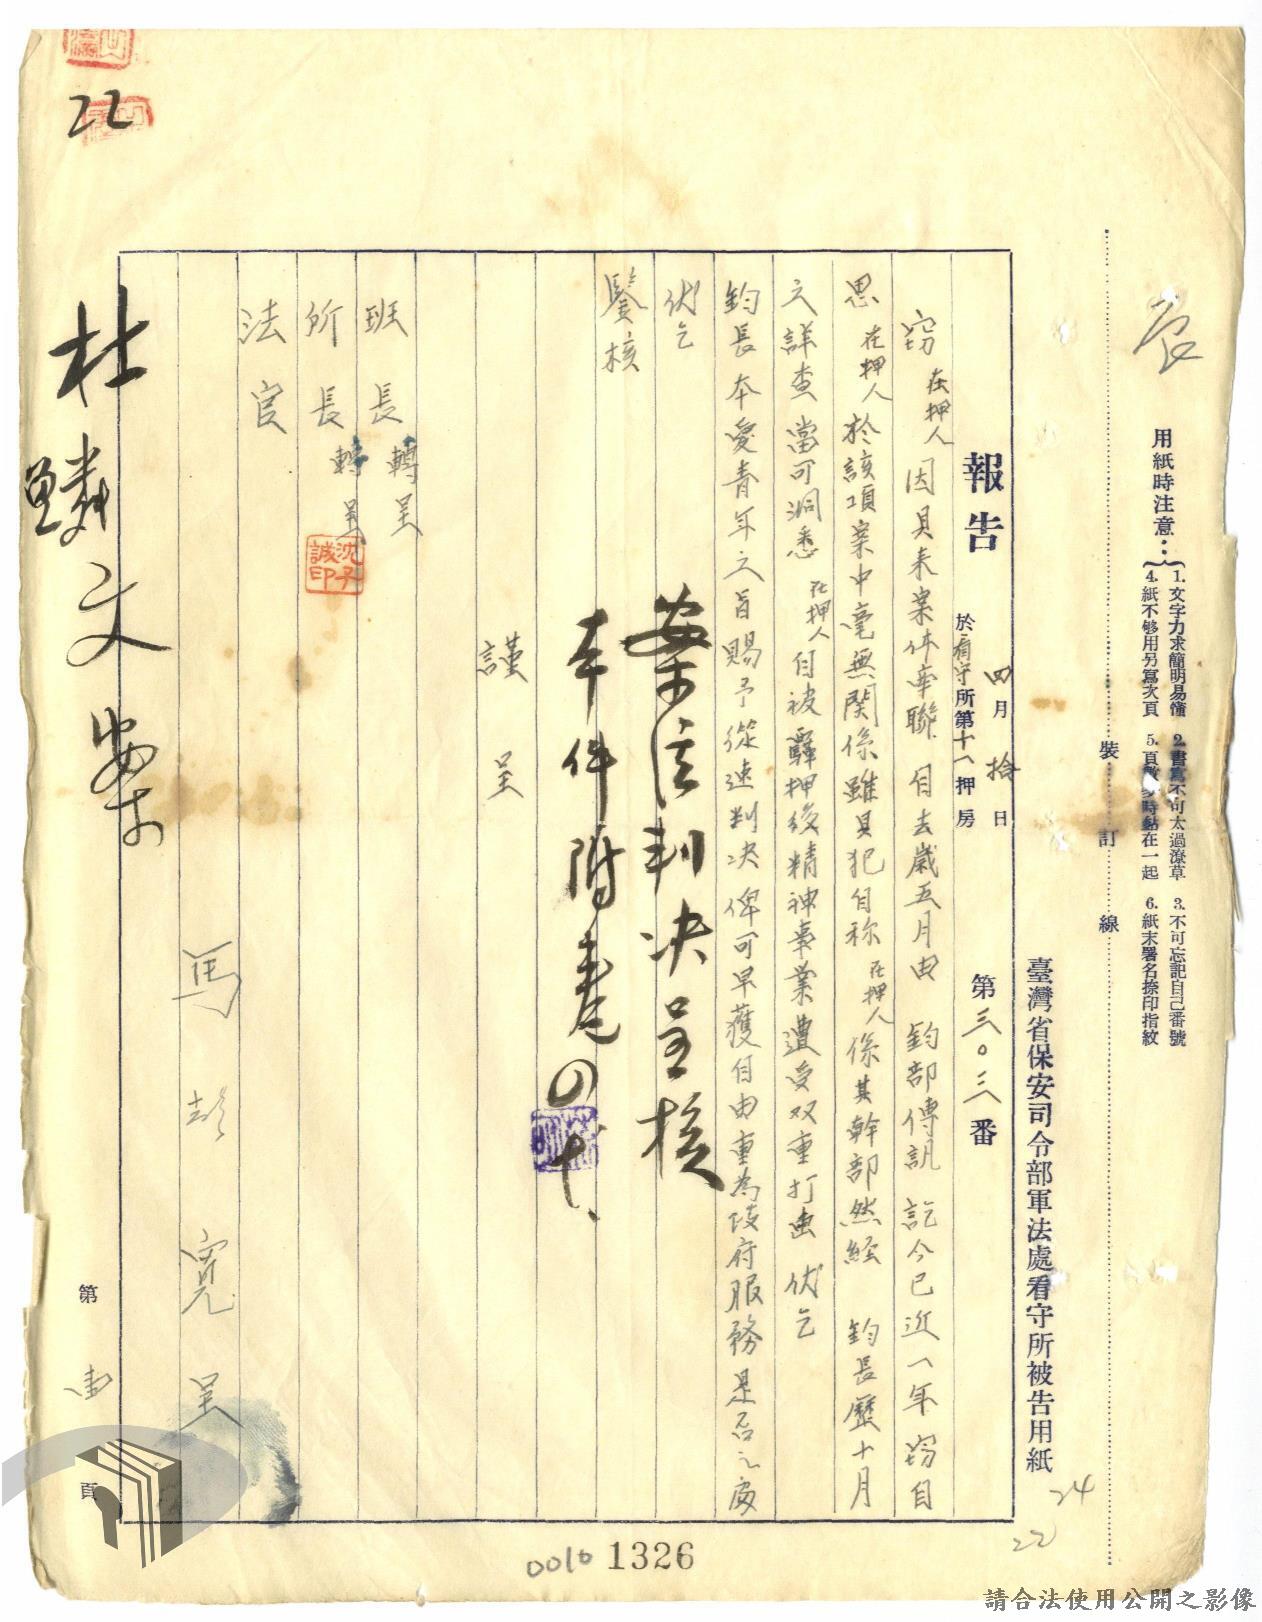 用紙時注意：
1. 文字力求簡明易懂 2. 書寫不可太過潦草 3. 不可忘記自己番號
4. 紙不够用另寫次頁 5. 頁數多時黏在一起 6. 紙末署名捺印指紋
裝訂線
臺灣省保安司令部軍法處看守所被告用紙
報告 四月拾日 於看守所第十八押房 第三〇三八番
竊在押人因貝夫案件牽聯 自去歲五月由 鈞部傳訊 訖今已近一年 竊自
思在押人於該項案中毫無関係雖貝犯自称在押人係其幹部然経 鈞長歷十月
之詳查當可洞悉 在押人自被羈押後精神事業遭受双重打击 伏乞
鈞長本愛青年之旨賜予從速判决俾可早獲自由重為政府服務是否之處
伏乞
鑒核
案信判决呈核
本件附卷
謹呈
班長轉呈
所長轉呈
沈子誠印
法官
馬彭寬呈
杜麟文案
第 頁
22
24
22
0010 1326
請合法使用公開之影像